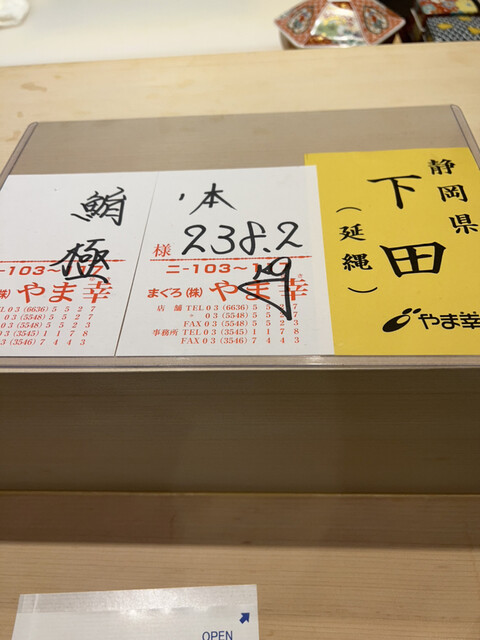 極
-103~
(株) やま幸
EL 03 (6636) 5527
03 (5548) 5527
03 (5548) 5523
03 (3545) 1178
03 (3546) 7443
本
様 238.2
ニ-103~
まぐろ (株) やま幸
店舗 TEL 03 (6636) 5527
〃 03 (5548) 5527
FAX 03 (5548) 5523
事務所 TEL 03 (3545) 1178
FAX 03 (3546) 7443
静岡県
下田
(延縄)
やま幸
OPEN